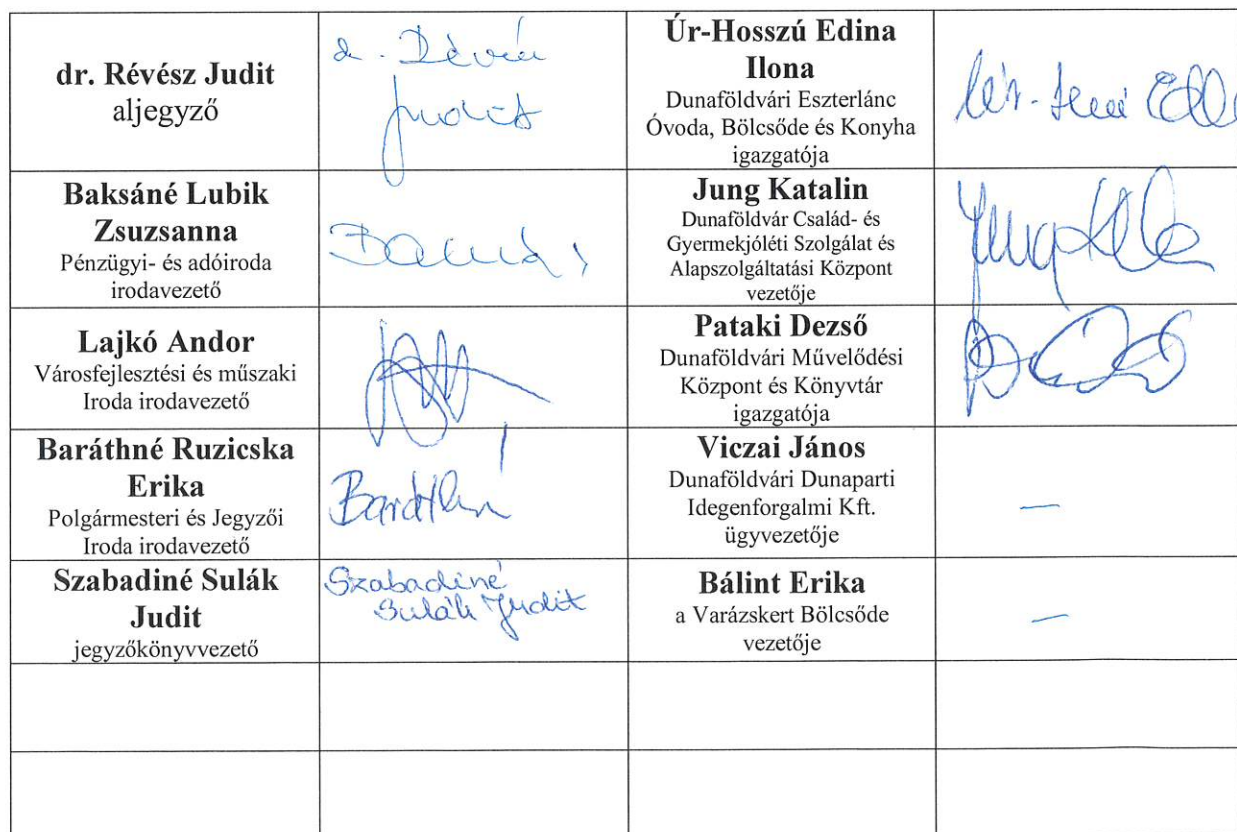 dr. Révész Judit
aljegyző
dr. Révész
Judit
Úr-Hosszú Edina
Ilona
Dunaföldvári Eszterlánc
Óvoda, Bölcsőde és Konyha
igazgatója
Baksáné Lubik
Zsuzsanna
Pénzügyi- és adóiroda
irodavezető
Jung Katalin
Dunaföldvár Család- és
Gyermekjóléti Szolgálat és
Alapszolgáltatási Központ
vezetője
Lajkó Andor
Városfejlesztési és műszaki
Iroda irodavezető
Pataki Dezső
Dunaföldvári Művelődési
Központ és Könyvtár
igazgatója
Baráthné Ruzicska
Erika
Polgármesteri és Jegyzői
Iroda irodavezető
Baráthné
Viczai János
Dunaföldvári Dunaparti
Idegenforgalmi Kft.
ügyvezetője
—
Szabadiné Sulák
Judit
jegyzőkönyvvezető
Szabadiné
Sulák Judit
Bálint Erika
a Varázskert Bölcsőde
vezetője
—